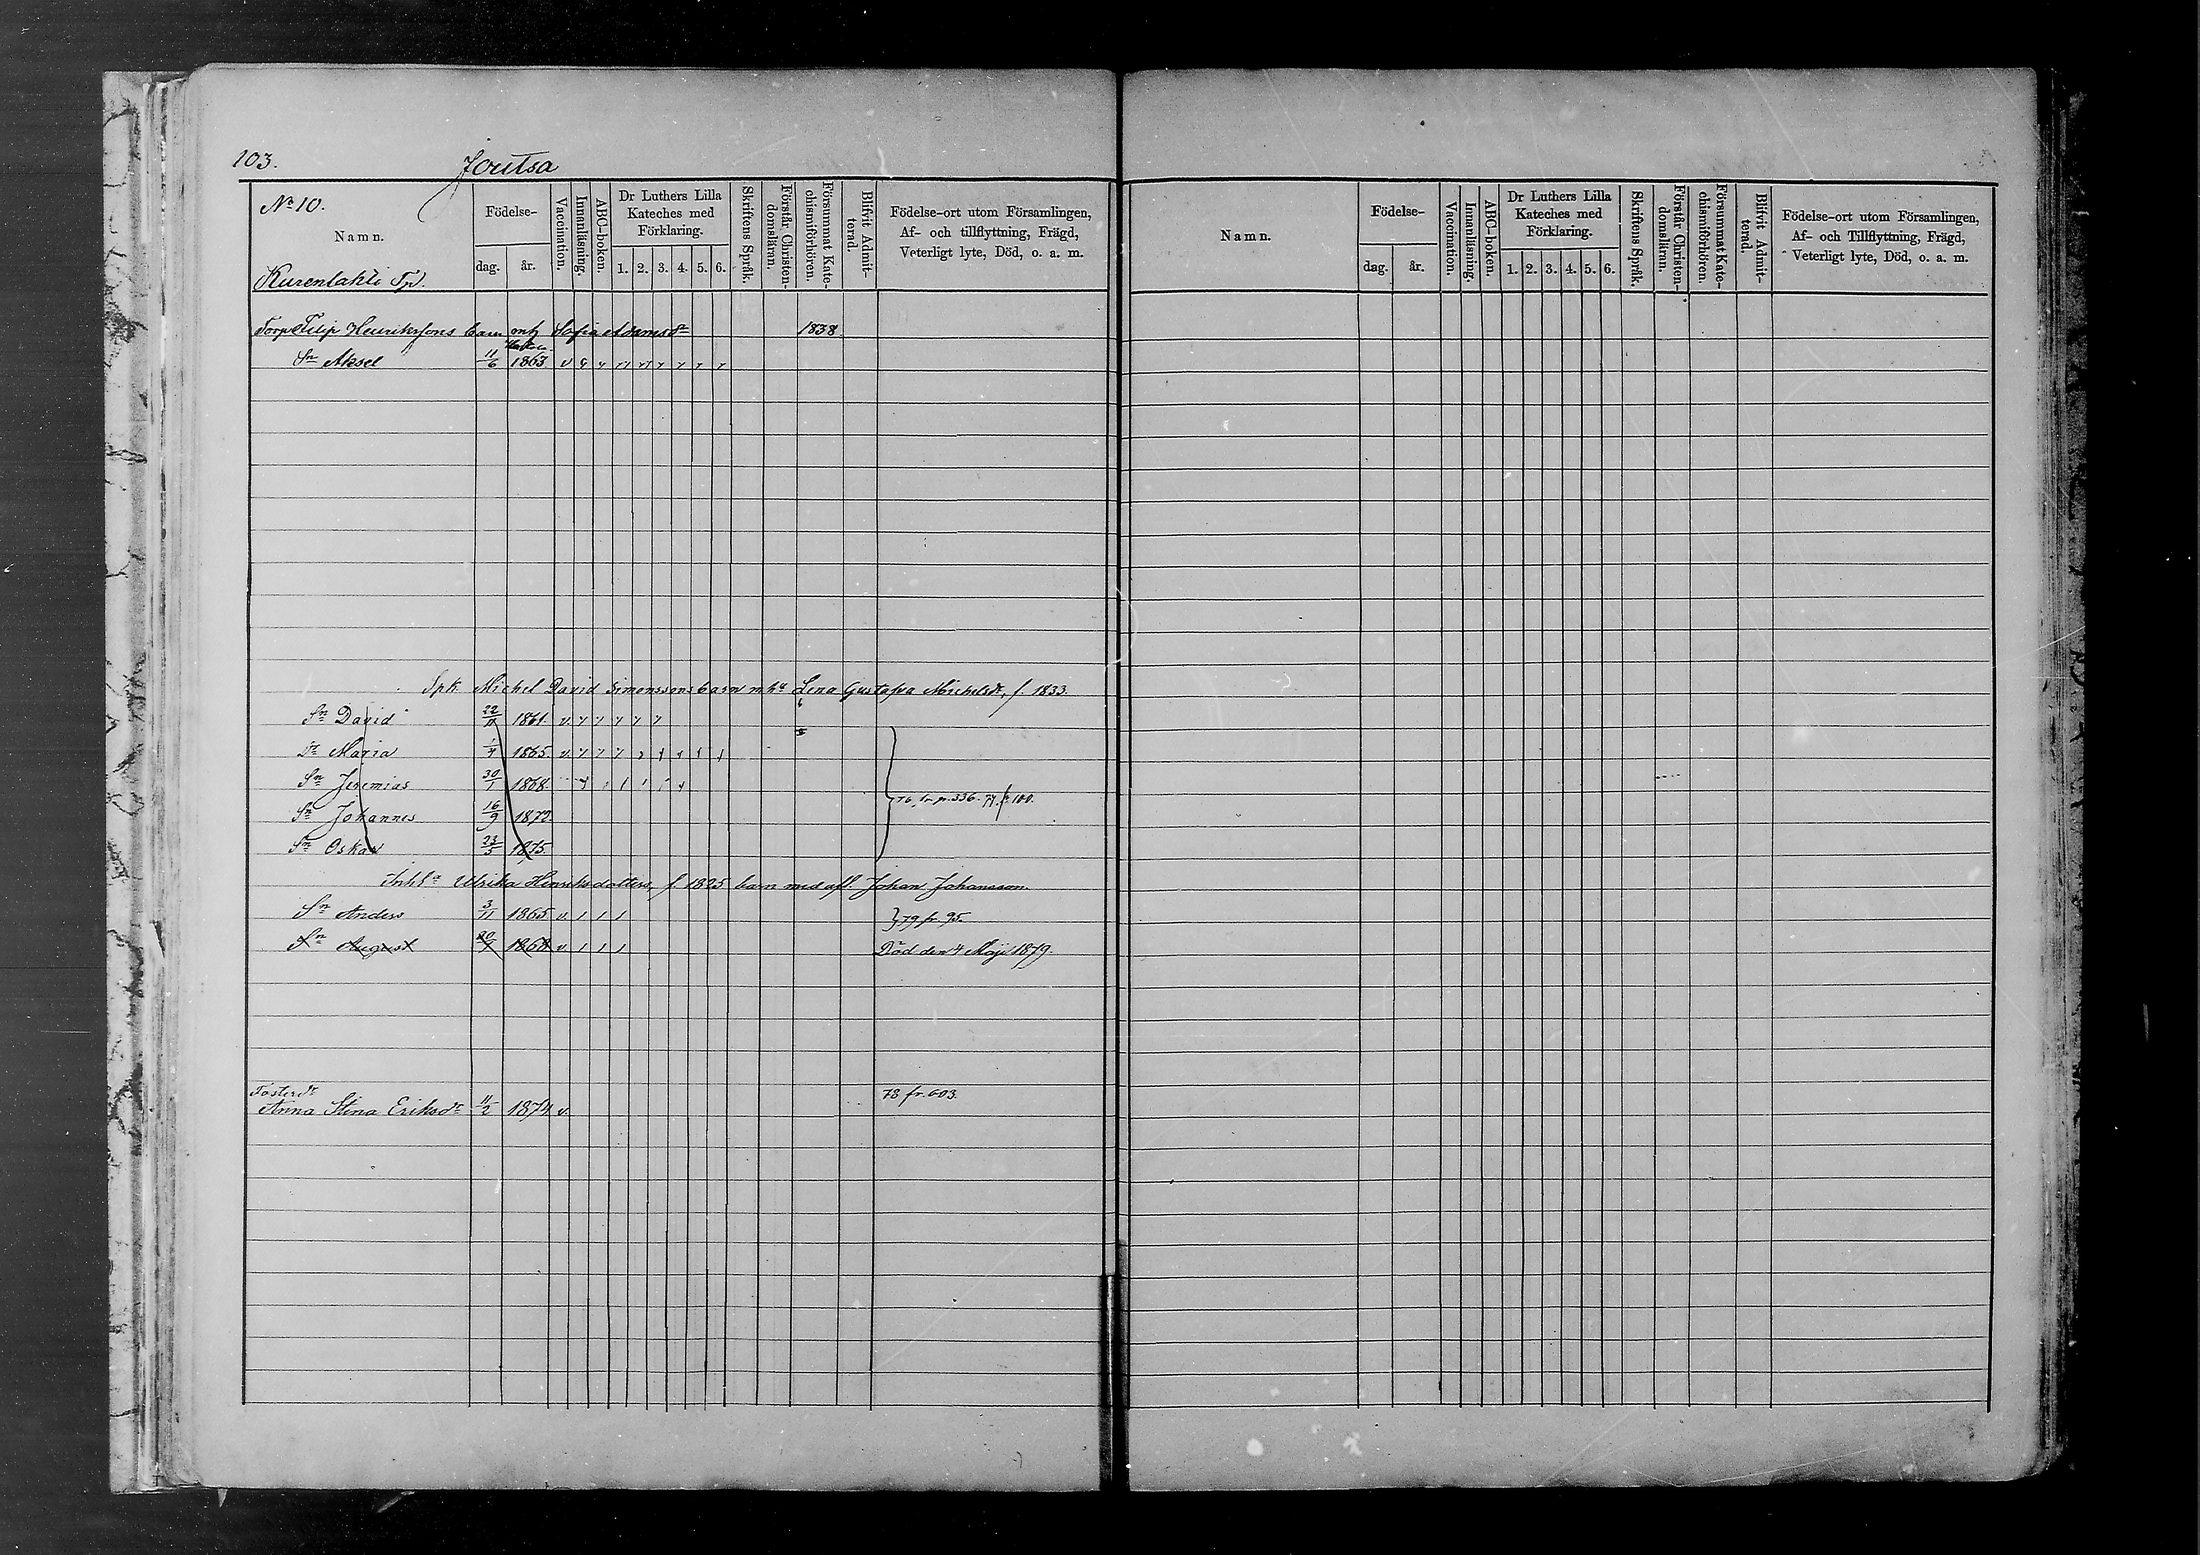 103.
Joutsa
No 10.
Namn.
Födelse-
dag.
år.
Vaccination.
Innanläsning.
ABC-boken.
Dr Luthers Lilla
Kateches med
Förklaring.
1. 2. 3. 4. 5. 6.
Skriftens Språk.
Förstår Christen-
domsläran.
Försummat Kate-
chismiförhören.
Blifvit Admit-
terad.
Födelse-ort utom Församlingen,
Af- och tillflyttning, Frägd,
Veterligt lyte, Död, o. a. m.
Kurenlahti Tp.
Torp Filip Henrikssons barn mh Sofia Adamsdr 1838
Sn Aksel 11/6 1863. v
Spk Michel David Simonssons barn m hu Lena Gustafva Michelsdr, f. 1833.
Sn David 22/11 1861. v
Dr Maria 1865. v
Sn Jeremias 30/1 1868.
Sn Johannes 16/9 1873
Sn Oskar 23/5 1875
76, fr. p. 336. 77. p. 100.
Inhsa Ulrika Henriksdotters, f 1825 barn med afl. Johan Johansson.
Sn Anders 3/11 1865 v. 1 1 1
79 fr. 95.
Sn August 1868 v 1 1 1 Död den 4 Maji 1879.
Fosterdr
Anna Stina Eriksdr 11/2 1874 v.
78 fr. 603.
Namn.
Födelse-
dag.
år.
Vaccination.
Innanläsning.
ABC-boken.
Dr Luthers Lilla
Kateches med
Förklaring.
1. 2. 3. 4. 5. 6.
Skriftens Språk.
Förstår Christen-
domsläran.
Försummat Kate-
chismiförhören.
Blifvit Admit-
terad.
Födelse-ort utom Församlingen,
Af- och Tillflyttning, Frägd,
Veterligt lyte, Död, o. a. m.